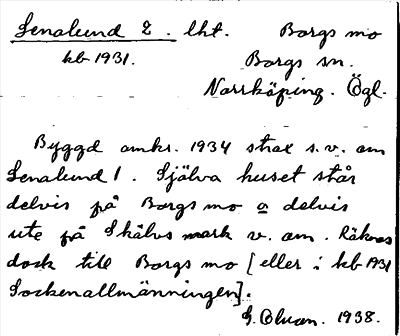 Senalund 2. lht. Borgs mo
kb 1931. Borgs sn.
Norrköping. Ögl.
Byggd omkr. 1934 strax s.v. om
Senalund 1. Själva huset står
delvis på Borgs mo o delvis
ute på Skälvs mark v. om. Räknas
dock till Borgs mo [eller i kb 1931
Sockenallmänningen].
G. 1938.